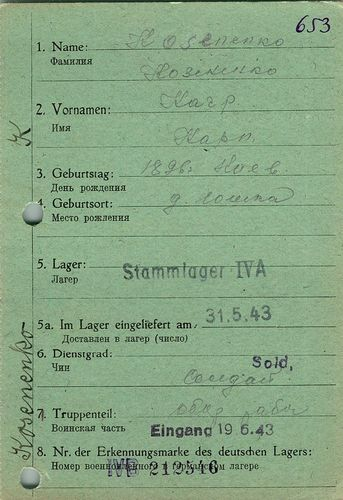 653
1. Name: Kosenenko
Фамилия
2. Vornamen:
Имя Карп
3. Geburtstag: 1896 Киев
День рождения
4. Geburtsort: д.
Место рожления
5. Lager: Stammlager IVA
Лагерь
5a. Im Lager eingeliefert am 31.5.43
Доставлен в лагерь (число)
6. Dienstgrad: Sold.
Чин Солдат
7. Truppenteil:
Воинская часть Eingang 19.6.43
8. Nr. der Erkennungsmarke des deutschen Lagers:
Номер военнопленного в германском лагере
IVB 212546
K
Kosenenko